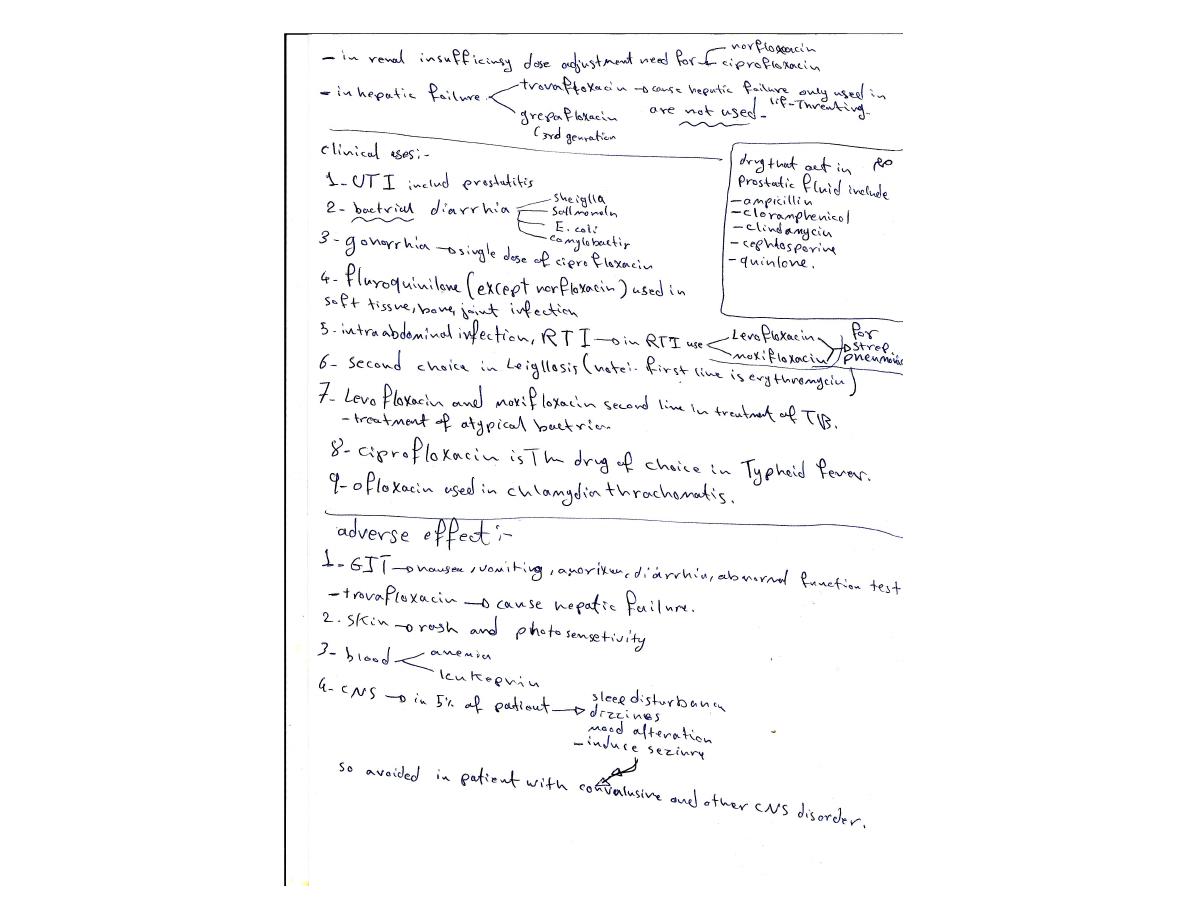 - in renal insufficinsy dose adjustment need for norfloxacin
ciprofloxacin
- in hepatic failure trovafloxacin → cause hepatic failure only used in
lif-Threating.
grepafloxacin are not used -
(3rd genration
clinical uses:-
1- UTI includ prostatitis
2- bactrial diarrhia sheiglla
sallmoneln
E. coli
camylobactir
3- gonorrhia → single dose of ciprofloxacin
4- fluroquinilone (except norfloxacin) used in
soft tissue, bone, joint infection
drug that act in
prostatic fluid include
- ampicillin
- cloramphenicol
- clindamycin
- cephlosporine
- quinlone.
5- intraabdominal infection, RTI → in RTI use Levofloxacin
moxifloxacin
for
strep.
pneumonia
6- second choice in Leigllosis (note:- first line is erythromycin)
7- Levofloxacin and moxifloxacin second line in treatment of TB.
- treatment of atypical bactria.
8- ciprofloxacin is The drug of choice in Typhoid fever.
9- ofloxacin used in chlamydia thrachomatis.
adverse effect:-
1- GIT → nausea, vomiting, anorixia, diarrhia, abnormal function test
- trovafloxacin → cause hepatic failure.
2. skin → rash and photosensetivity
3- blood anemia
leukepnia
4- CNS → in 5% of patient → sleep disturbance
dizzines
mood alteration
- induce seziury
so avoided in patient with convalusive and other CNS disorder.